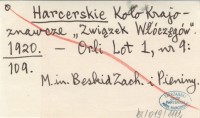 Harcerskie Koło Krajo-
znawcze „Związek Włóczęgów".
1920. — Orli Lot 1, nr 9:
109.
M.in. Beskid Zach. i Pieniny.